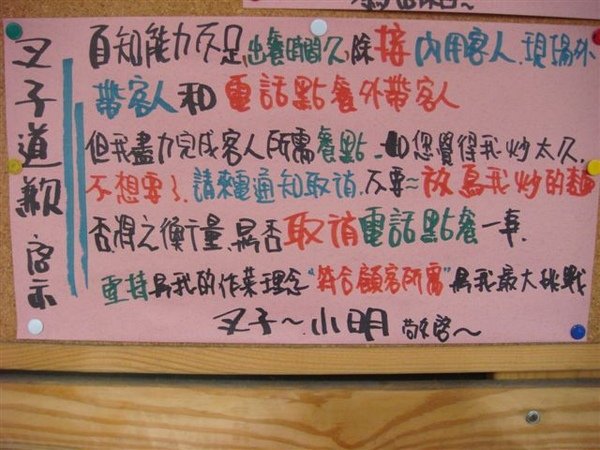 叉子道歉啓示
自知能力不足,出餐時間久,除接內用客人.現場外
帶客人和電話點餐外帶客人
但我盡力完成客人所需餐點.如您覺得我炒太久,
不想要了.請來電通知取消.不要=放鳥我炒的麵
否將之衡量.是否取消電話點餐一事.
堅持為我的作業理念"符合顧客所需"為我最大挑戰
叉子～小明 敬啓～